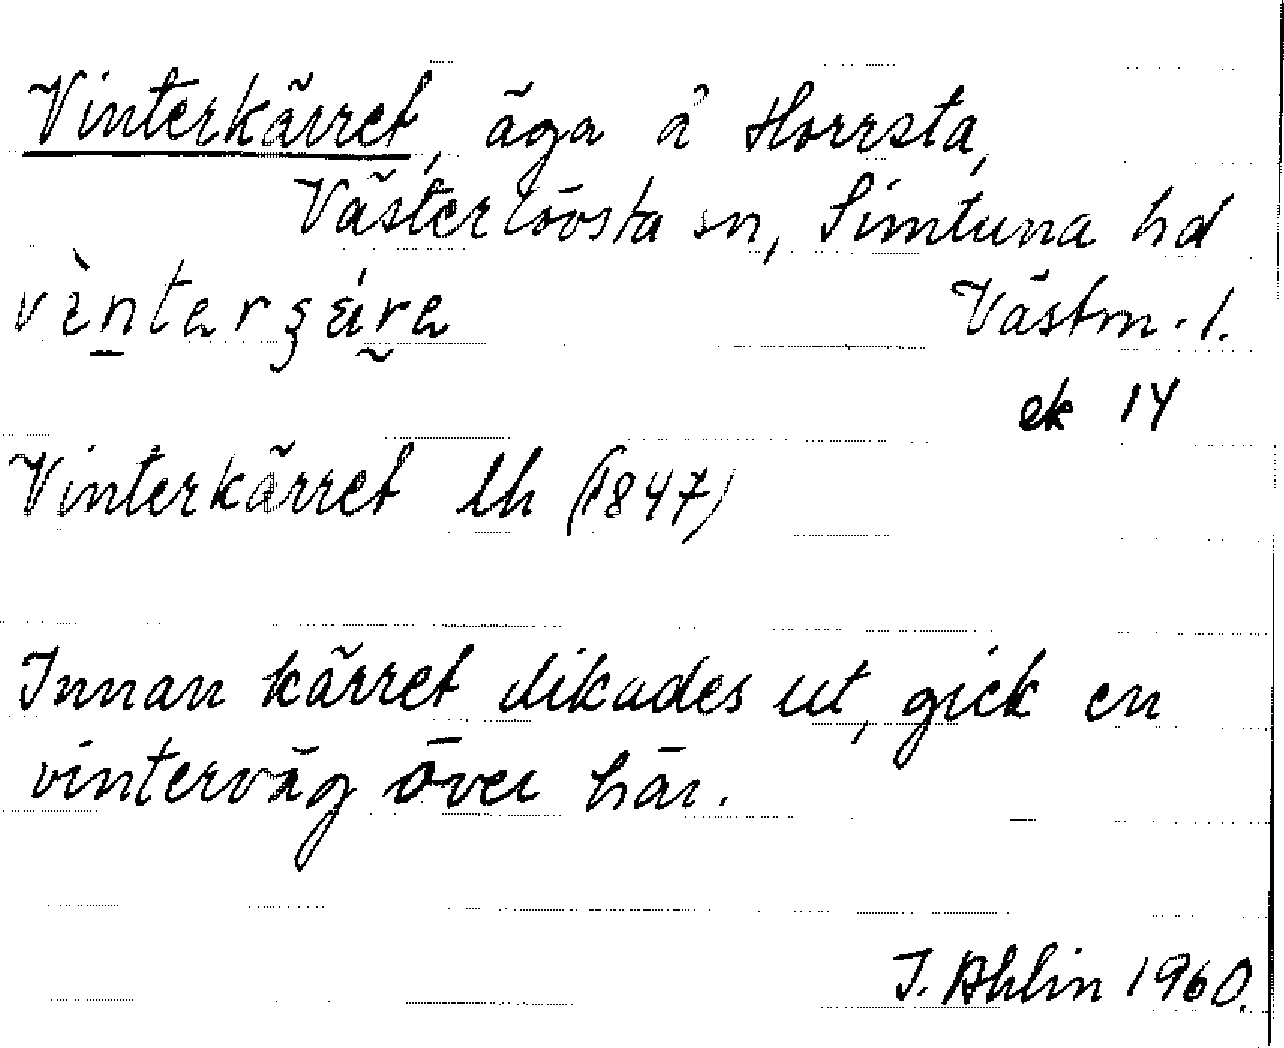 Vinterkärret, äga å Horrsta,
Västerlövsta sn, Simtuna hd
Västm. l.
ek 14
Vinterkärret lh (1847)
Innan kärret dikades ut, gick en
vinterväg över här.
I. Ahlin 1960.